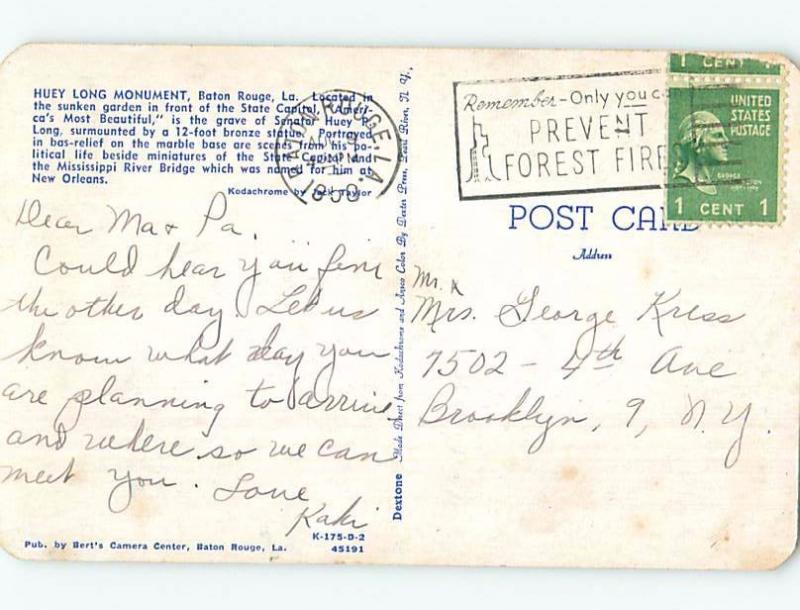 HUEY LONG MONUMENT, Baton Rouge, La. Located in
the sunken garden in front of the State Capitol, "Ameri-
ca's Most Beautiful," is the grave of Senator Huey P.
Long, surmounted by a 12-foot bronze statue. Portrayed
in bas-relief on the marble base are scenes from his po-
litical life beside miniatures of the State Capitol and
the Mississippi River Bridge which was named for him at
New Orleans.
Kodachrome by Jack Taylor
Dear Ma & Pa,
Could hear you fine
the other day. Let us
know what day you
are planning to arrive
and where so we can
meet you. Love
Kaki
K-175-D-2
Pub. by Bert's Camera Center, Baton Rouge, La.
45191
Dextone Made Direct from Kodachrome and Ansco Color By Dexter Press, Pearl River, N. Y.
BATON ROUGE, LA.
PM
Remember-Only you c
PREVENT
FOREST FIRE
1 CENT
UNITED
STATES
POSTAGE
GEORGE
1 CENT 1
POST CARD
Address
Mr. &
Mrs. George Kress
7502 - 4th Ave
Brooklyn, 9, N.Y.